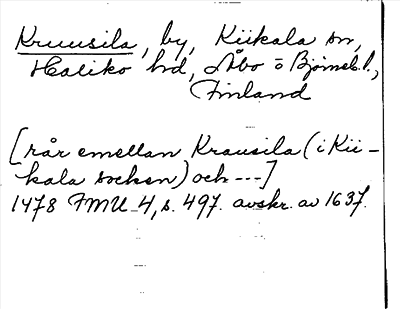 Kruusila, by, Kiikala sn,
Haliko hd, Åbo o Björneb. l.,
Finland
[rår emellan Krausila (i Kii-
kala socken) och ---]
1478 FMU 4, s. 497. avskr. av 1637.